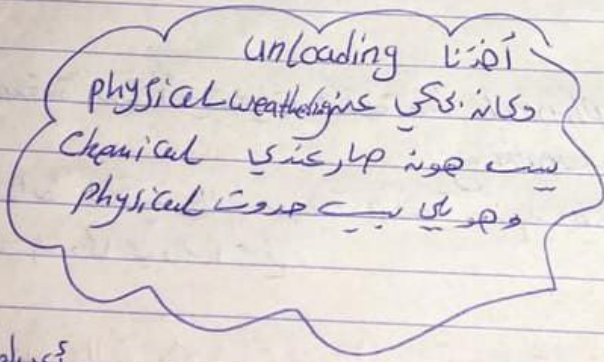 أخذنا unloading
وكان بحكي عن physical weathering
بس هون صار عندي Chemical
وهو يلي بسبب حدوث physical